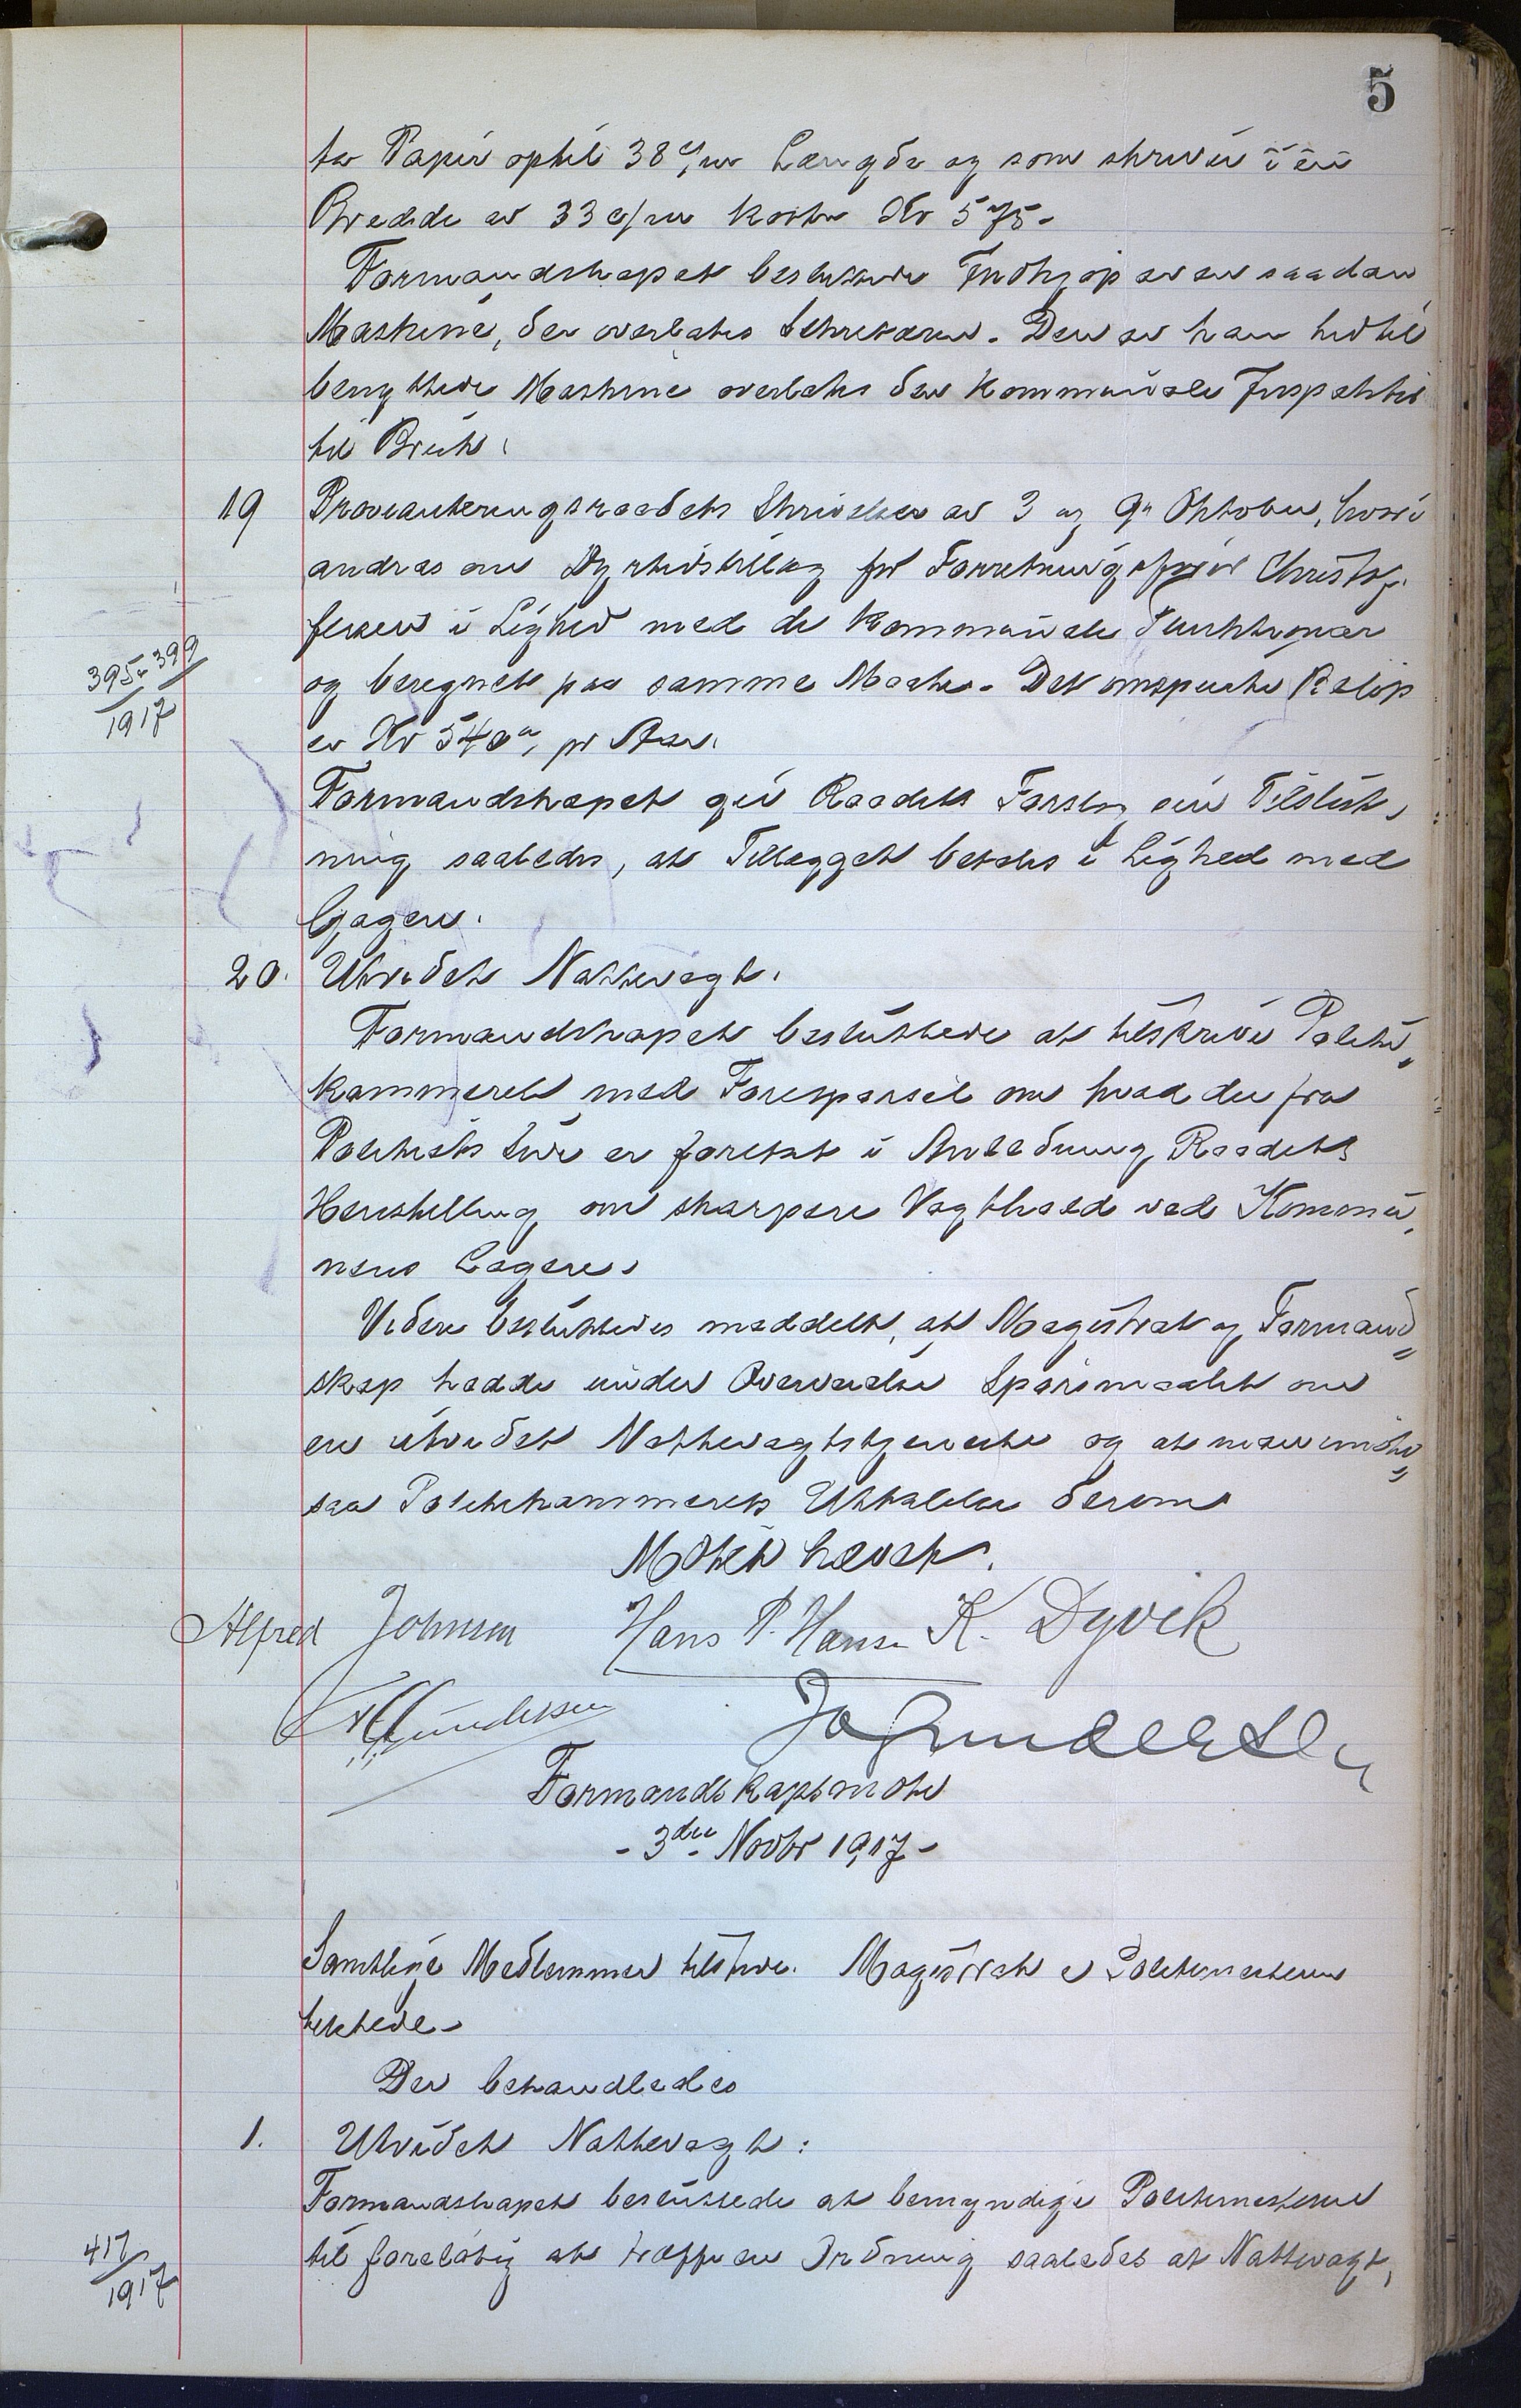 5
tar Papir optil 38 c/m Længde og som skriver i en
Bredde av 33 c/m koster Kr 575-
Formandskapet besluttede Indkjøp av en saadan
Maskine, der overlates Sekretæren. Den av ham hidtil
benyttede Maskine overlates den Kommunale Inspektør
til Bruk.
19 Provianteringsraadets Skrivelser av 3 og 9" Oktober, hvori
andras om Dyrtidstillæg for Forretningsfører Christof-
fersen i Lighed med de Kommunale Funktionær
og beregnet paa samme Maate. Det omspurte Beløp
395 - 399
1917
er Kr 540", pr Aar.
Formandskapet gir Raadets Forslag sin Tilslut-
ning saaledes, at Tillægget betales i Lighed med
Gagen.
20. Utvidet Nattevagt.
Formandskapet besluttede at tilskrive Politi-
kammeret med Forespørsel om hvad der fra
Politiets Side er foretat i Anledning Raadets
Henstilling om skarpere Vagthold ved Kommu-
nens Lagere.
Videre besluttedes meddelt, at Magistrat og Formand-
skap hadde under Overveielse Spørsmaalet om
en utvidet Nattevagtstjeneste og at man imøte-
saa Politikammerets Uttalelse derom
Møtet hævet.
Alfred Johnsen Hans P. Hansen K. Dyvik
Gundersen
Jo Gundersen
Formandskapsmøte
- 3die Novbr 1917 -
Samtlige Medlemmer tilstede. Magistrat & Politimesteren
tilstede-
Der behandledes
1. Utvidet Nattevagt:
Formandskapet besluttede at bemyndige Politimesteren
til foreløbig at træffe en Ordning saaledes at Nattevagt,
417
1917